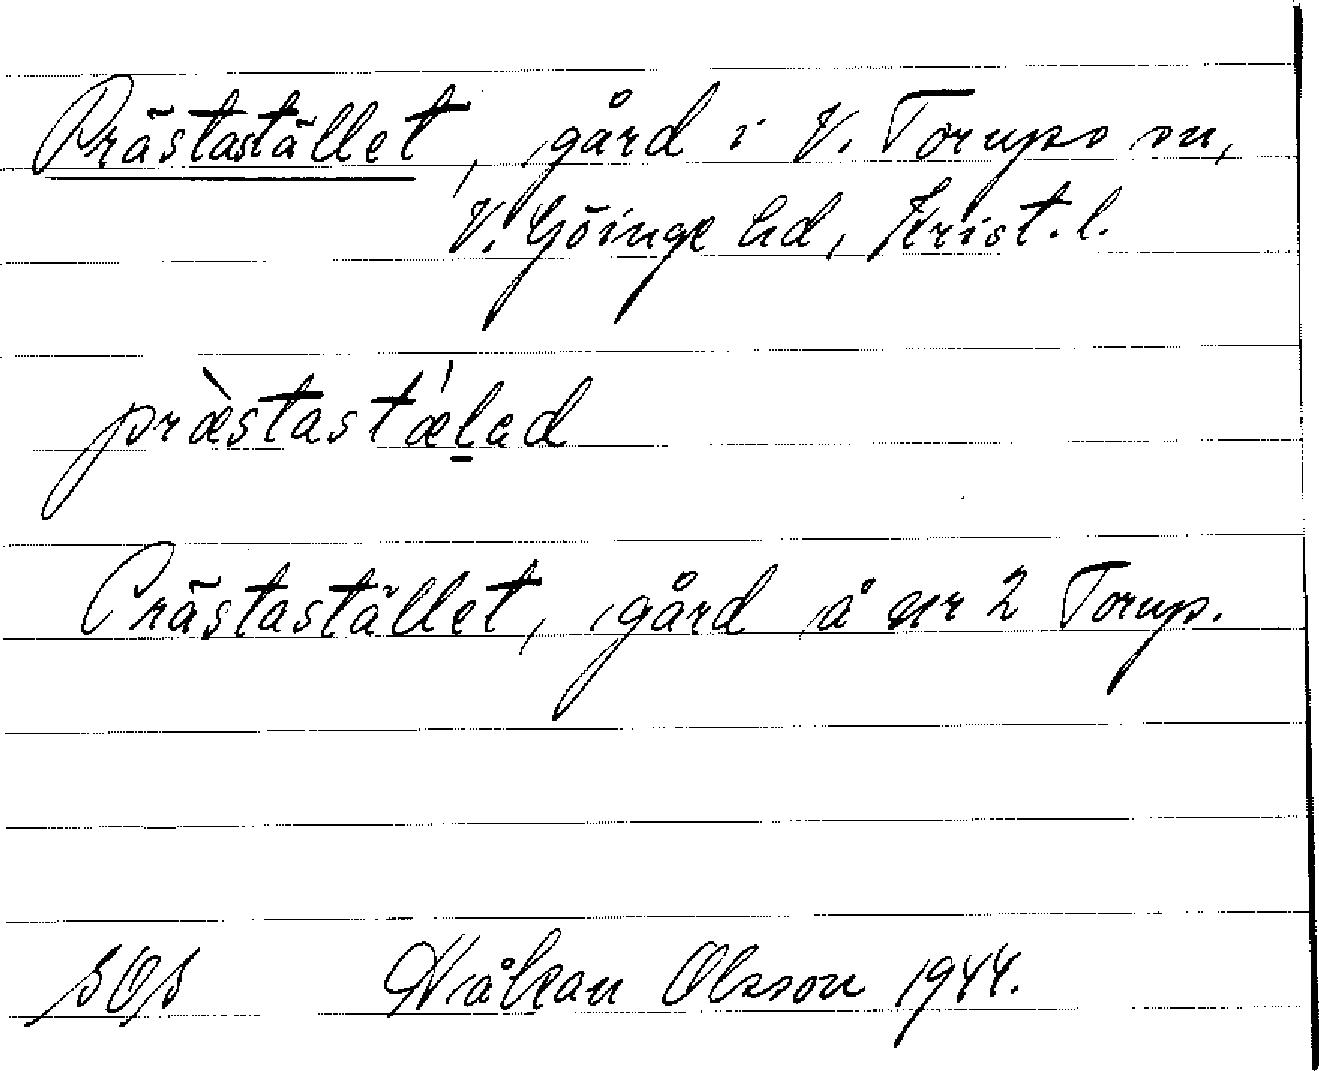 Prästastället, gård i V. Torups sn,
V. Göinge hd, Krist. l.
præ̀stastǽlad
Prästastället, gård å nr 2 Torup.
SOS Håkan Olsson 1944.